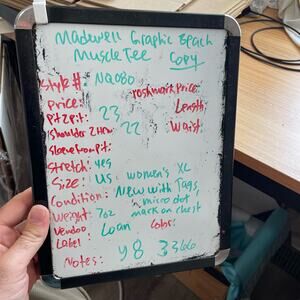 Madewell Graphic Beach
Muscle Tee Copy
Style #: NQ080
Poshmark Price:
Price:
Length:
Pit 2 pit: 23
Waist:
Shoulder 2 Hem: 22
Sleeve from pit:
Stretch: yes
Size: US women's XL
Condition: New with Tags,
micro dot
mark on chest
Weight: 7oz
Color:
Vendoo
Label Loan
Notes: y8